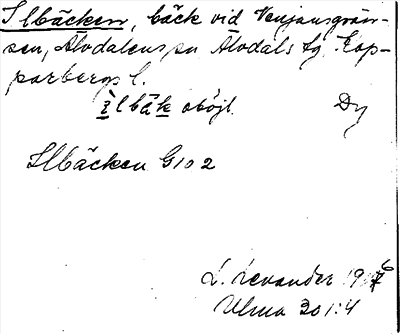 Ilbäcken, bäck vid Venjansgrän-
sen, Älvdalens sn Älvdals tg. Kop-
parbergs l.
ìlbäk oböjl. Dy
Ilbäcken G102
L. Levander 1916
Ulma 201:4